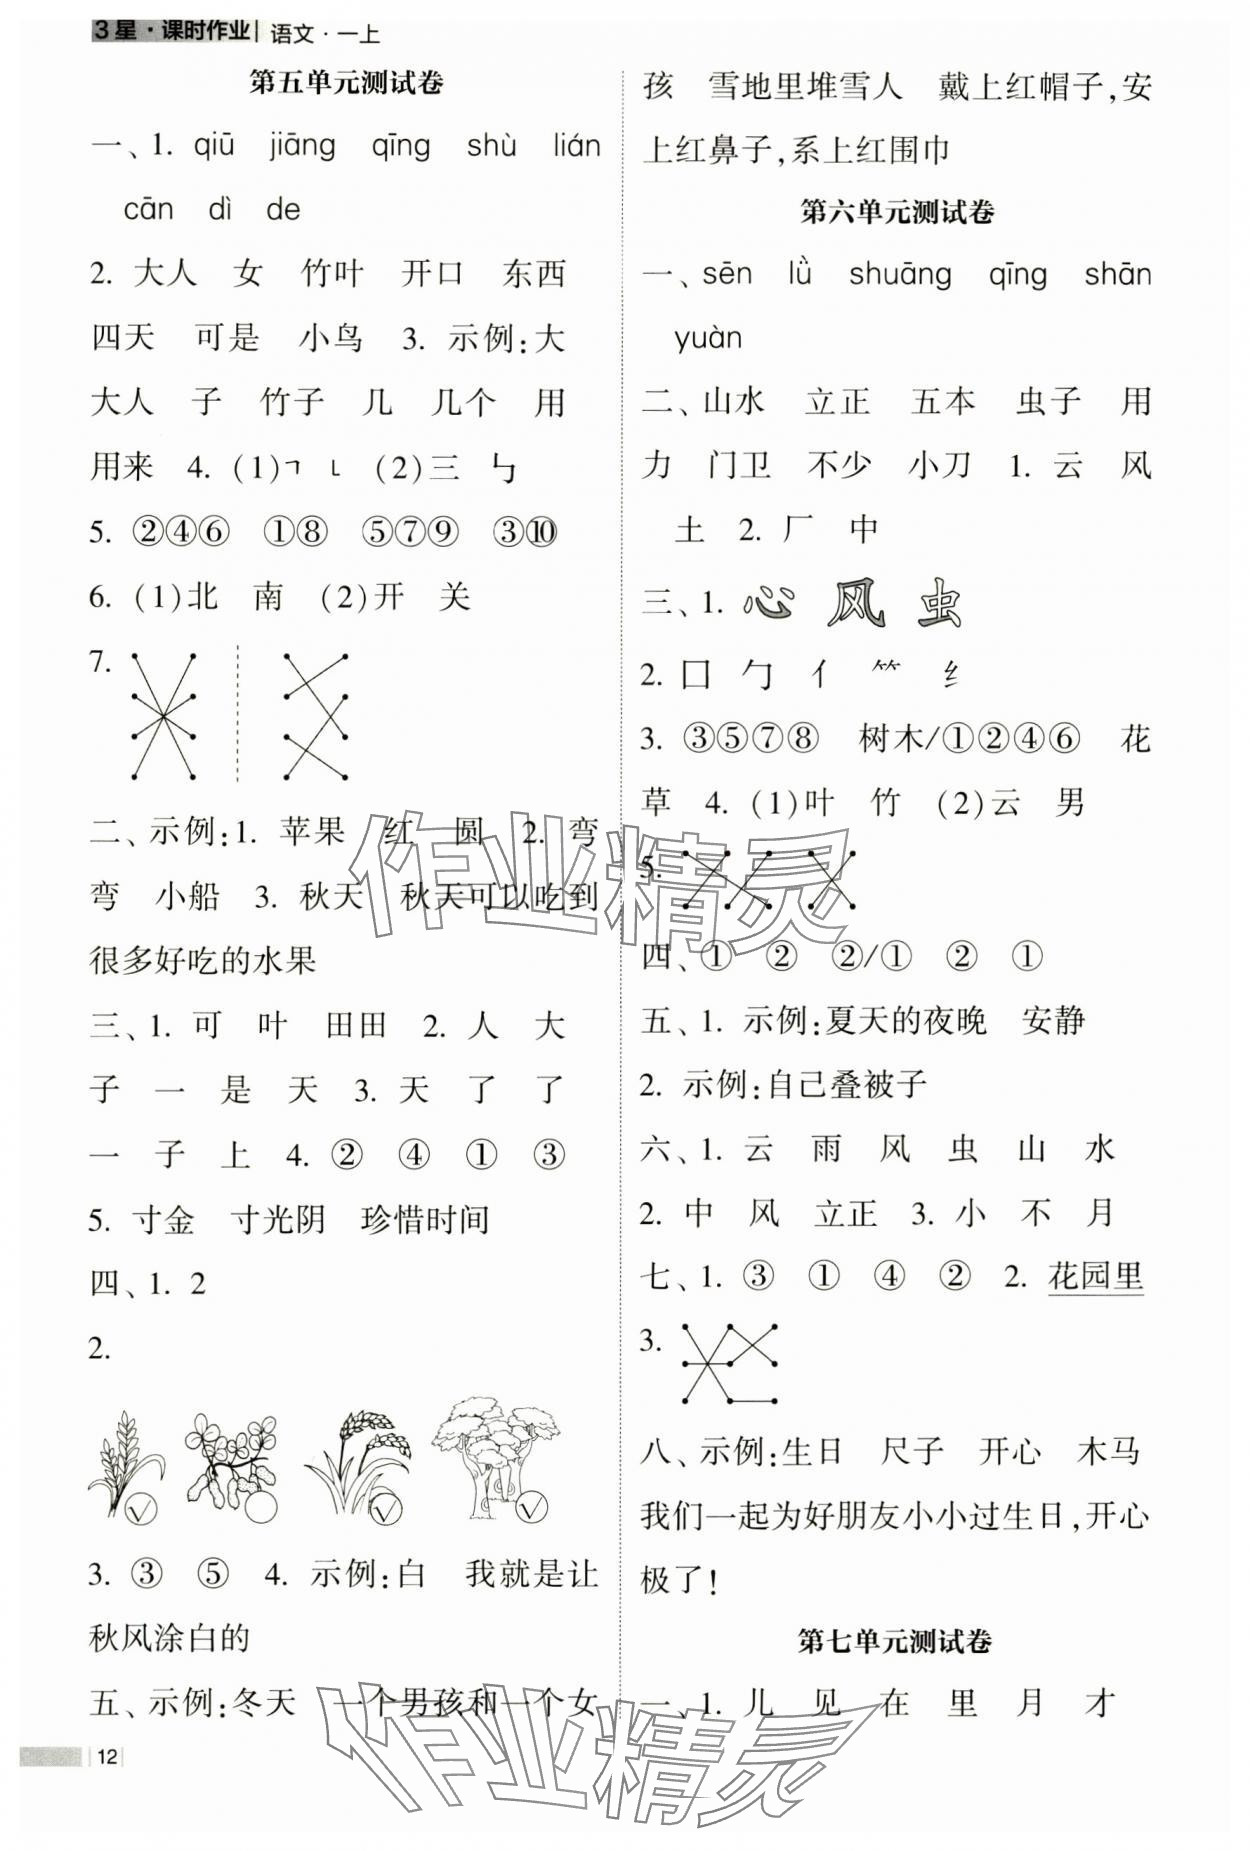 3星·课时作业 语文·一上
第五单元测试卷
一、1. qiū jiāng qīng shù lián
cān dì de
2. 大人 女 竹叶 开口 东西
四天 可是 小鸟 3. 示例:大
大人 子 竹子 几 几个 用
用来 4. (1)㇕ ㇄ (2)三 ㇉
5. ②④⑥ ①⑧ ⑤⑦⑨ ③⑩
6. (1)北 南 (2)开 关
7.
二、示例:1. 苹果 红 圆 2. 弯
弯 小船 3. 秋天 秋天可以吃到
很多好吃的水果
三、1. 可 叶 田田 2. 人 大
子 一 是 天 3. 天 了 了
一 子 上 4. ② ④ ① ③
5. 寸金 寸光阴 珍惜时间
四、1. 2
2.
3. ③ ⑤ 4. 示例:白 我就是让
秋风涂白的
五、示例:冬天 一个男孩和一个女
12
孩 雪地里堆雪人 戴上红帽子,安
上红鼻子,系上红围巾
第六单元测试卷
一、sēn lǜ shuāng qīng shān
yuàn
二、山水 立正 五本 虫子 用
力 门卫 不少 小刀 1. 云 风
土 2. 厂 中
三、1. 心 风 虫
2. 囗 勹 亻 ⺮ 纟
3. ③⑤⑦⑧ 树木/①②④⑥ 花
草 4. (1)叶 竹 (2)云 男
5.
四、① ② ②/① ② ①
五、1. 示例:夏天的夜晚 安静
2. 示例:自己叠被子
六、1. 云 雨 风 虫 山 水
2. 中 风 立正 3. 小 不 月
七、1. ③ ① ④ ② 2. 花园里
3.
八、示例:生日 尺子 开心 木马
我们一起为好朋友小小过生日,开心
极了!
第七单元测试卷
一、1. 儿 见 在 里 月 才
作业精灵
作业精灵